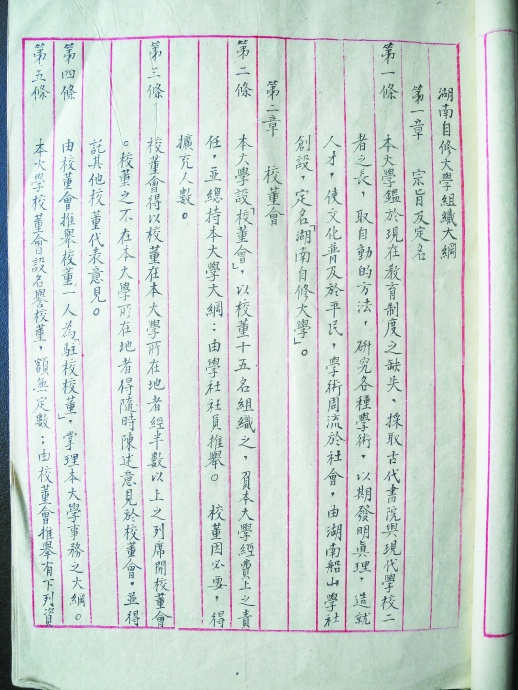 湖南自修大學組織大綱
第一章　宗旨及定名
第一條　本大學鑑於現在教育制度之缺失，採取古代書院與現代學校二
者之長，取自動的方法，研究各種學術，以期發明眞理，造就
人才，使文化普及於平民，學術周流於社會，由湖南船山學社
創設，定名「湖南自修大學」。
第二章　校董會
第二條　本大學設「校董會」，以校董十五名組織之，負本大學經費上之責
任，並總持本大學大綱：由學社社員推舉。　校董因必要，得
擴充人數。
第三條　校董會得以校董在本大學所在地者經半數以上之列席開校董會
。校董之不在本大學所在地者得隨時陳述意見於校董會，並得
託其他校董代表意見。
第四條　由校董會推舉校董一人為「駐校校董」，掌理本大學事務之大綱。
第五條　本大學校董會設名譽校董，額無定數；由校董會推舉有下列資